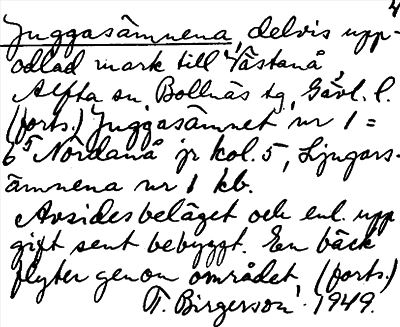 4
Juggasämnena, delvis upp-
odlad mark till Västanå
Alfta sn, Bollnäs tg, Gävl. l.
(forts.) Juggasämnet nr 1 =
6⁵ Nordanå jr kol. 5, Ljugars-
ämnena nr 1 kb.
Avsides beläget och enl. upp
gift sent bebyggt. En bäck
flyter genom området (forts.)
T. Birgerson 1949.